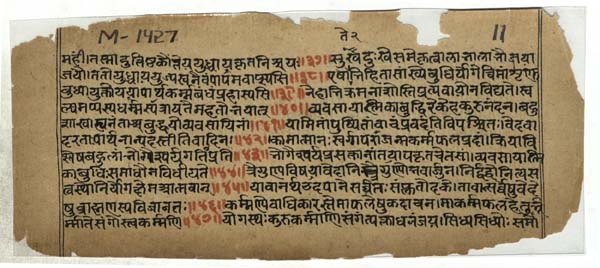 M-1427 ते२ 11
महीं। तस्मादुत्तिष्ठ कौंतेय युद्धाय कृतनिश्चयः॥३७॥ सुखेदुःखे समे कृत्वा लाभालाभौ जया
जयौ। ततो युद्धाय युज्यस्व नैवं पापमवाप्स्यसि॥३८॥ एषा तेभिहिता सांख्ये बुद्धिर्योगे त्विमां शृणु
बुध्यायुक्तो यया पार्थ कर्मबंधं प्रहास्यसि॥३९॥ नेहाभिक्रमनाशोस्ति प्रत्यवायो न विद्यते। स्व
ल्पमप्यस्य धर्मस्य त्रायते महतो भयात्॥४०॥ व्यवसायात्मिका बुद्धिरेकेह कुरुनंदन। बहु
शाखा ह्यनंताश्च बुद्धयोव्यवसायिनां॥४१॥ यामिमां पुष्पितां वाचं प्रवदंत्यविपश्चितः। वेदवा
दरताः पार्थ नान्यदस्तीति वादिनः॥४२॥ कामात्मानः स्वर्गपरा जन्मकर्मफलप्रदां। क्रियावि
शेषबहुलां भोगैश्वर्यगतिं प्रति॥४३॥ भोगैश्वर्यप्रसक्तानां तयापहृतचेतसां। व्यवसायात्मि
का बुद्धिः समाधौ न विधीयते॥४४॥ त्रैगुण्यविषया वेदा निस्त्रैगुण्यो भवार्जुन। निर्द्वंद्वो नित्यस
त्वस्थो निर्योगक्षेम आत्मवान्॥४५॥ यावानर्थ उदपाने सर्वतः संप्लुतोदके। तावान्सर्वेषु वेदे
षु ब्राह्मणस्य विजानतः॥४६॥ कर्मण्येवाधिकारस्ते मा फलेषु कदाचन। मा कर्मफलहेतुर्भू
र्माते संगोस्त्वकर्मणि॥४७॥ योगस्थः कुरु कर्माणि संगं त्यक्त्वा धनंजय। सिध्यसिध्योः समो